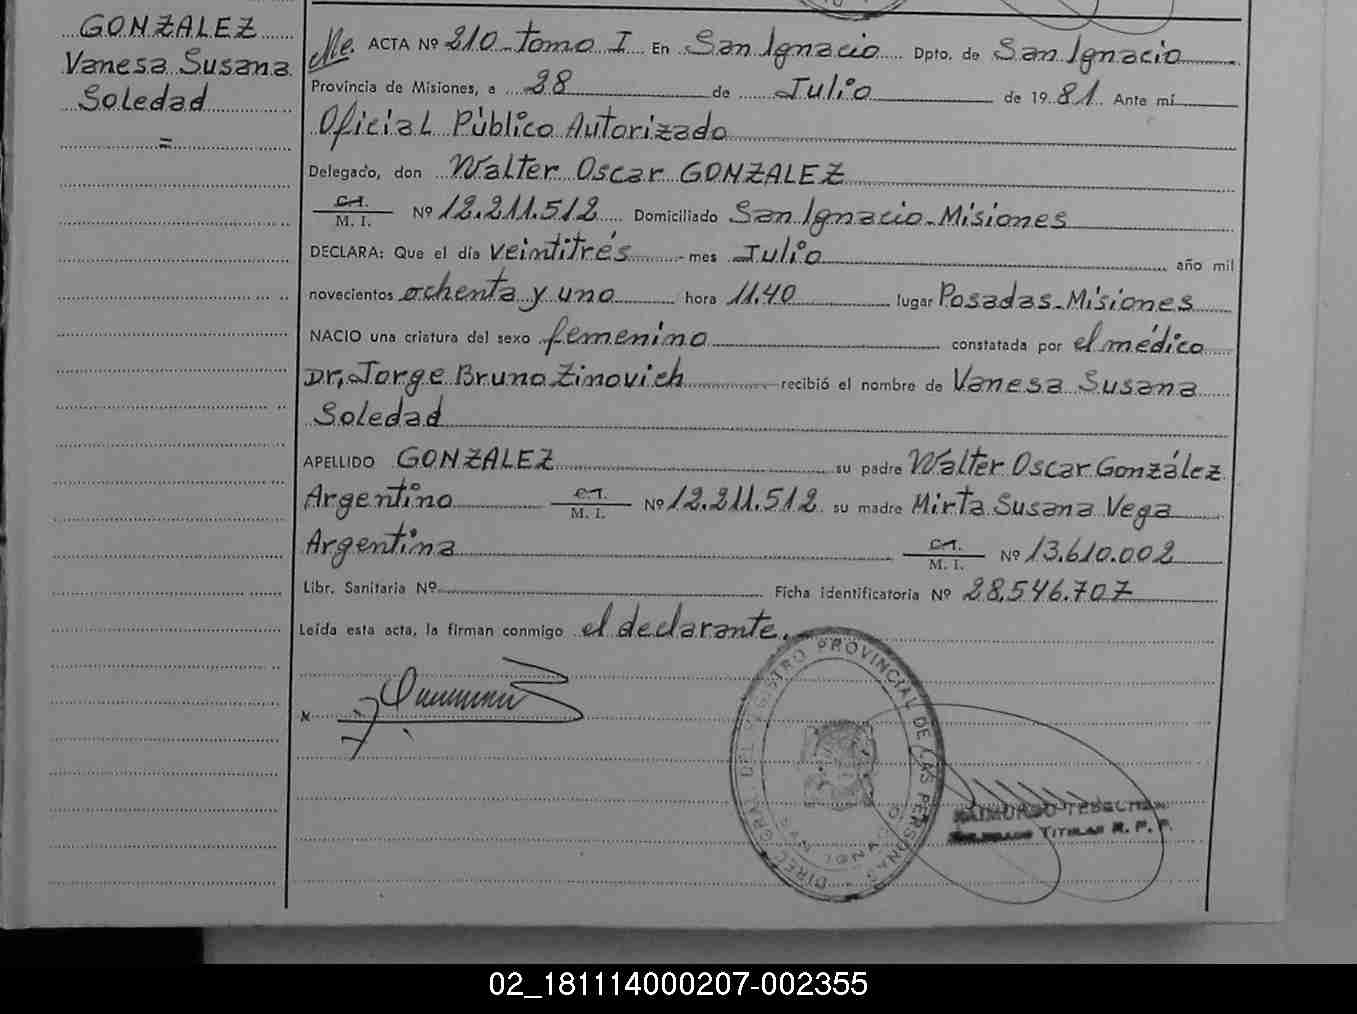 GONZALEZ
Vanesa Susana
Soledad
=
ACTA Nº 210 - Tomo I En San Ignacio Dpto. de San Ignacio
Provincia de Misiones, a 28 de Julio de 1981 Ante mí
Oficial Público Autorizado
Delegado, don Walter Oscar GONZALEZ
C.I.
M. I. Nº 12.211.512 Domiciliado San Ignacio - Misiones
DECLARA: Que el día veintitrés - mes Julio año mil
novecientos ochenta y uno hora 11.40 lugar Posadas - Misiones
NACIO una criatura del sexo femenino constatada por el médico
Dr. Jorge Bruno Zinovich recibió el nombre de Vanesa Susana
Soledad
APELLIDO GONZALEZ su padre Walter Oscar González
Argentino C.I. M. I. Nº 12.211.512 su madre Mirta Susana Vega
Argentina C.I. M. I. Nº 13.610.002
Libr. Sanitaria Nº Ficha identificatoria Nº 28.546.707
Leída esta acta, la firman conmigo el declarante.
DIREC. GRAL. DEL REGISTRO PROVINCIAL DE LAS PERSONAS
SAN IGNACIO
TITULAR R. P. P.
02_181114000207-002355